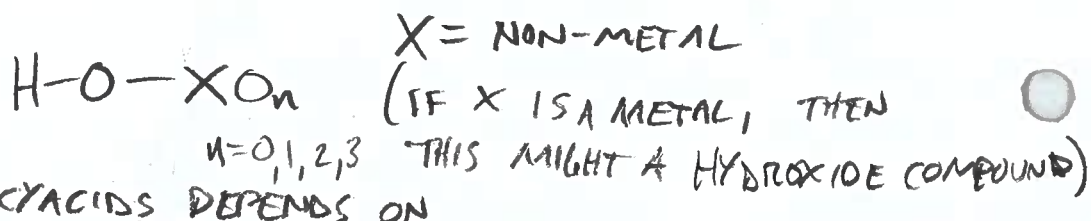 X = NON-METAL
H-O-XOn (IF X IS A METAL, THEN
n=0,1,2,3 THIS MIGHT A HYDROXIDE COMPOUND)
DEPENDS ON